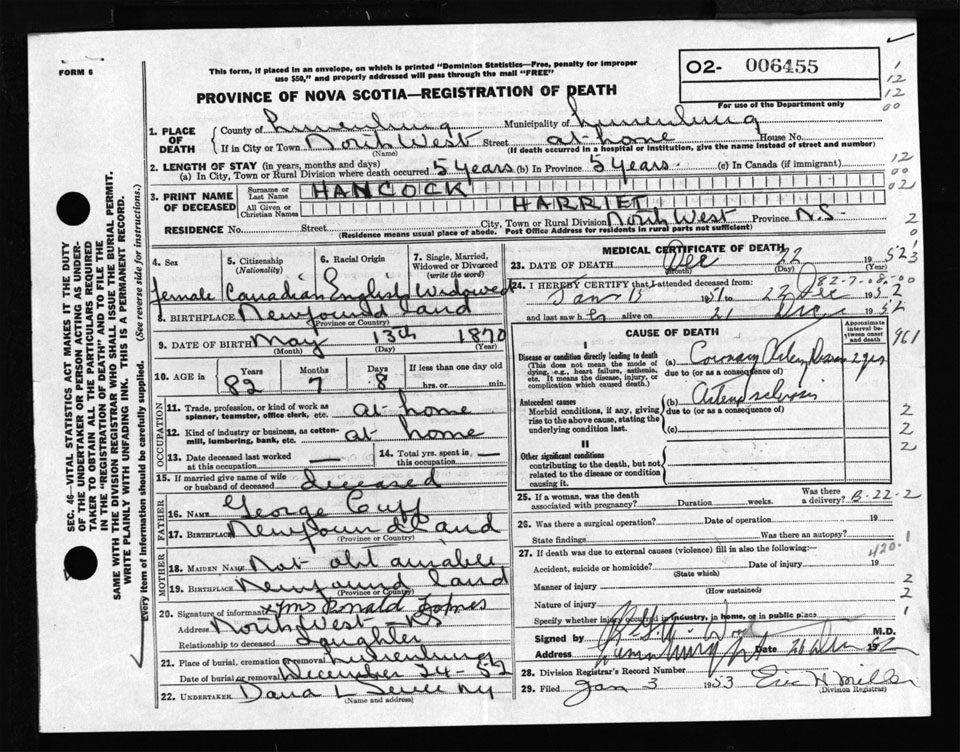 FORM 6
This form, if placed in an envelope, on which is printed "Dominion Statistics—Free, penalty for improper
use $50," and properly addressed will pass through the mail "FREE"
O2- 006455
For use of the Department only
PROVINCE OF NOVA SCOTIA—REGISTRATION OF DEATH
1. PLACE OF DEATH
County of Lunenburg Municipality of Lunenburg
If in City or Town North West Street at home House No.
(Name) (If death occurred in a hospital or institution, give the name instead of street and number)
2. LENGTH OF STAY (in years, months and days)
(a) In City, Town or Rural Division where death occurred 5 years (b) In Province 5 years. (c) In Canada (if immigrant)
3. PRINT NAME OF DECEASED
Surname or Last Name HANCOCK
All Given or Christian Names HARRIET
RESIDENCE No. Street City, Town or Rural Division North West Province N.S.
(Residence means usual place of abode. Post Office Address for residents in rural parts not sufficient)
4. Sex 5. Citizenship (Nationality) 6. Racial Origin 7. Single, Married, Widowed or Divorced (write the word)
female Canadian English Widowed
8. BIRTHPLACE Newfoundland
(Province or Country)
9. DATE OF BIRTH May 13th 1870
(Month) (Day) (Year)
10. AGE in Years Months Days If less than one day old
82 7 8 hrs. or min.
OCCUPATION
11. Trade, profession, or kind of work as spinner, teamster, office clerk, etc. at home
12. Kind of industry or business, as cotton-mill, lumbering, bank, etc. at home
13. Date deceased last worked at this occupation — 14. Total yrs. spent in this occupation —
15. If married give name of wife or husband of deceased deceased
FATHER
16. NAME George Cuff
17. BIRTHPLACE Newfoundland
(Province or Country)
MOTHER
18. MAIDEN NAME Not obtainable
19. BIRTHPLACE Newfoundland
(Province or Country)
20. Signature of informant Mrs Ronald
Address North West - NS
Relationship to deceased Daughter
21. Place of burial, cremation or removal Lunenburg
Date of burial or removal December 24 - 52
22. UNDERTAKER
(Name and address)
MEDICAL CERTIFICATE OF DEATH
23. DATE OF DEATH Dec 22 1952
(Month) (Day) (Year)
24. I HEREBY CERTIFY that I attended deceased from:
82-7-08-00
22 Dec 1952
and last saw h er alive on 21 Dec 1952
CAUSE OF DEATH
Approximate interval between onset and death
I
Disease or condition directly leading to death (a) Coronary Artery Disease 2 yrs
(This does not mean the mode of dying, e.g., heart failure, asthenia, etc. It means the disease, injury, or complication which caused death.)
due to (or as a consequence of)
Antecedent causes (b) Arteriosclerosis
Morbid conditions, if any, giving rise to the above cause, stating the underlying condition last.
due to (or as a consequence of)
(c)
II
Other significant conditions
contributing to the death, but not related to the disease or condition causing it.
25. If a woman, was the death associated with pregnancy? Duration weeks. Was there a delivery? B-22-2
26. Was there a surgical operation? Date of operation 19
State findings Was there an autopsy?
27. If death was due to external causes (violence) fill in also the following:—
420.1
Accident, suicide or homicide? Date of injury 19
(State which)
Manner of injury
(How sustained)
Nature of injury
Specify whether injury occurred in industry, in home, or in public place
Signed by M.D.
Address Lunenburg Date 1952
28. Division Registrar's Record Number
29. Filed Jan 3 1953 Eric H Miller
(Division Registrar)
SEC. 46—VITAL STATISTICS ACT MAKES IT THE DUTY
OF THE UNDERTAKER OR PERSON ACTING AS UNDER-
TAKER TO OBTAIN ALL THE PARTICULARS REQUIRED
IN THE "REGISTRATION OF DEATH" AND TO FILE THE
SAME WITH THE DIVISION REGISTRAR WHO SHALL ISSUE THE BURIAL PERMIT.
WRITE PLAINLY WITH UNFADING INK. THIS IS A PERMANENT RECORD.
Every item of information should be carefully supplied. (See reverse side for instructions.)
1
12
12
00
12
00
02
2
0
1
3
961
2
2
2
2
2
1